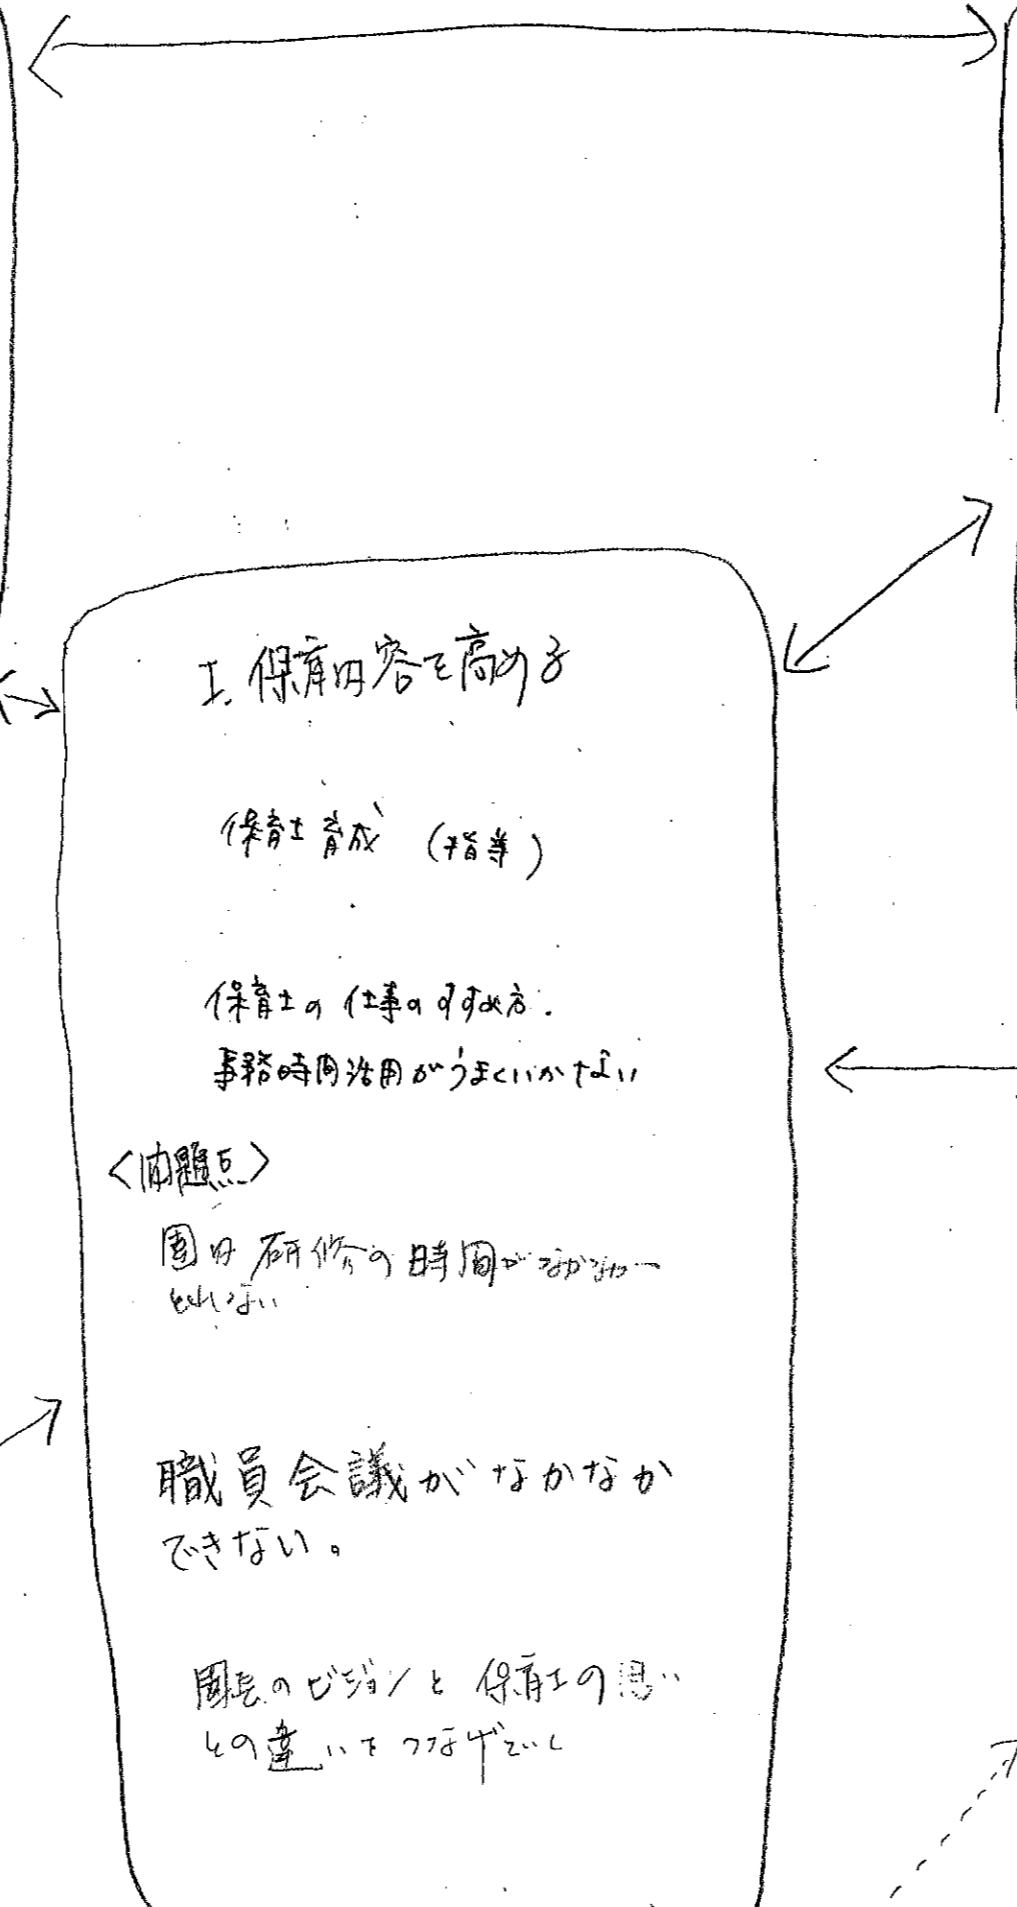 I. 保育内容を高める
保育士育成 (指導)
保育士の仕事のすすめ方.
事務時間活用がうまくいかない
<問題点>
園内研修の時間がなかなか
とれない
職員会議がなかなか
できない。
園長のビジョンと保育士の思い
との違いをつなげていく